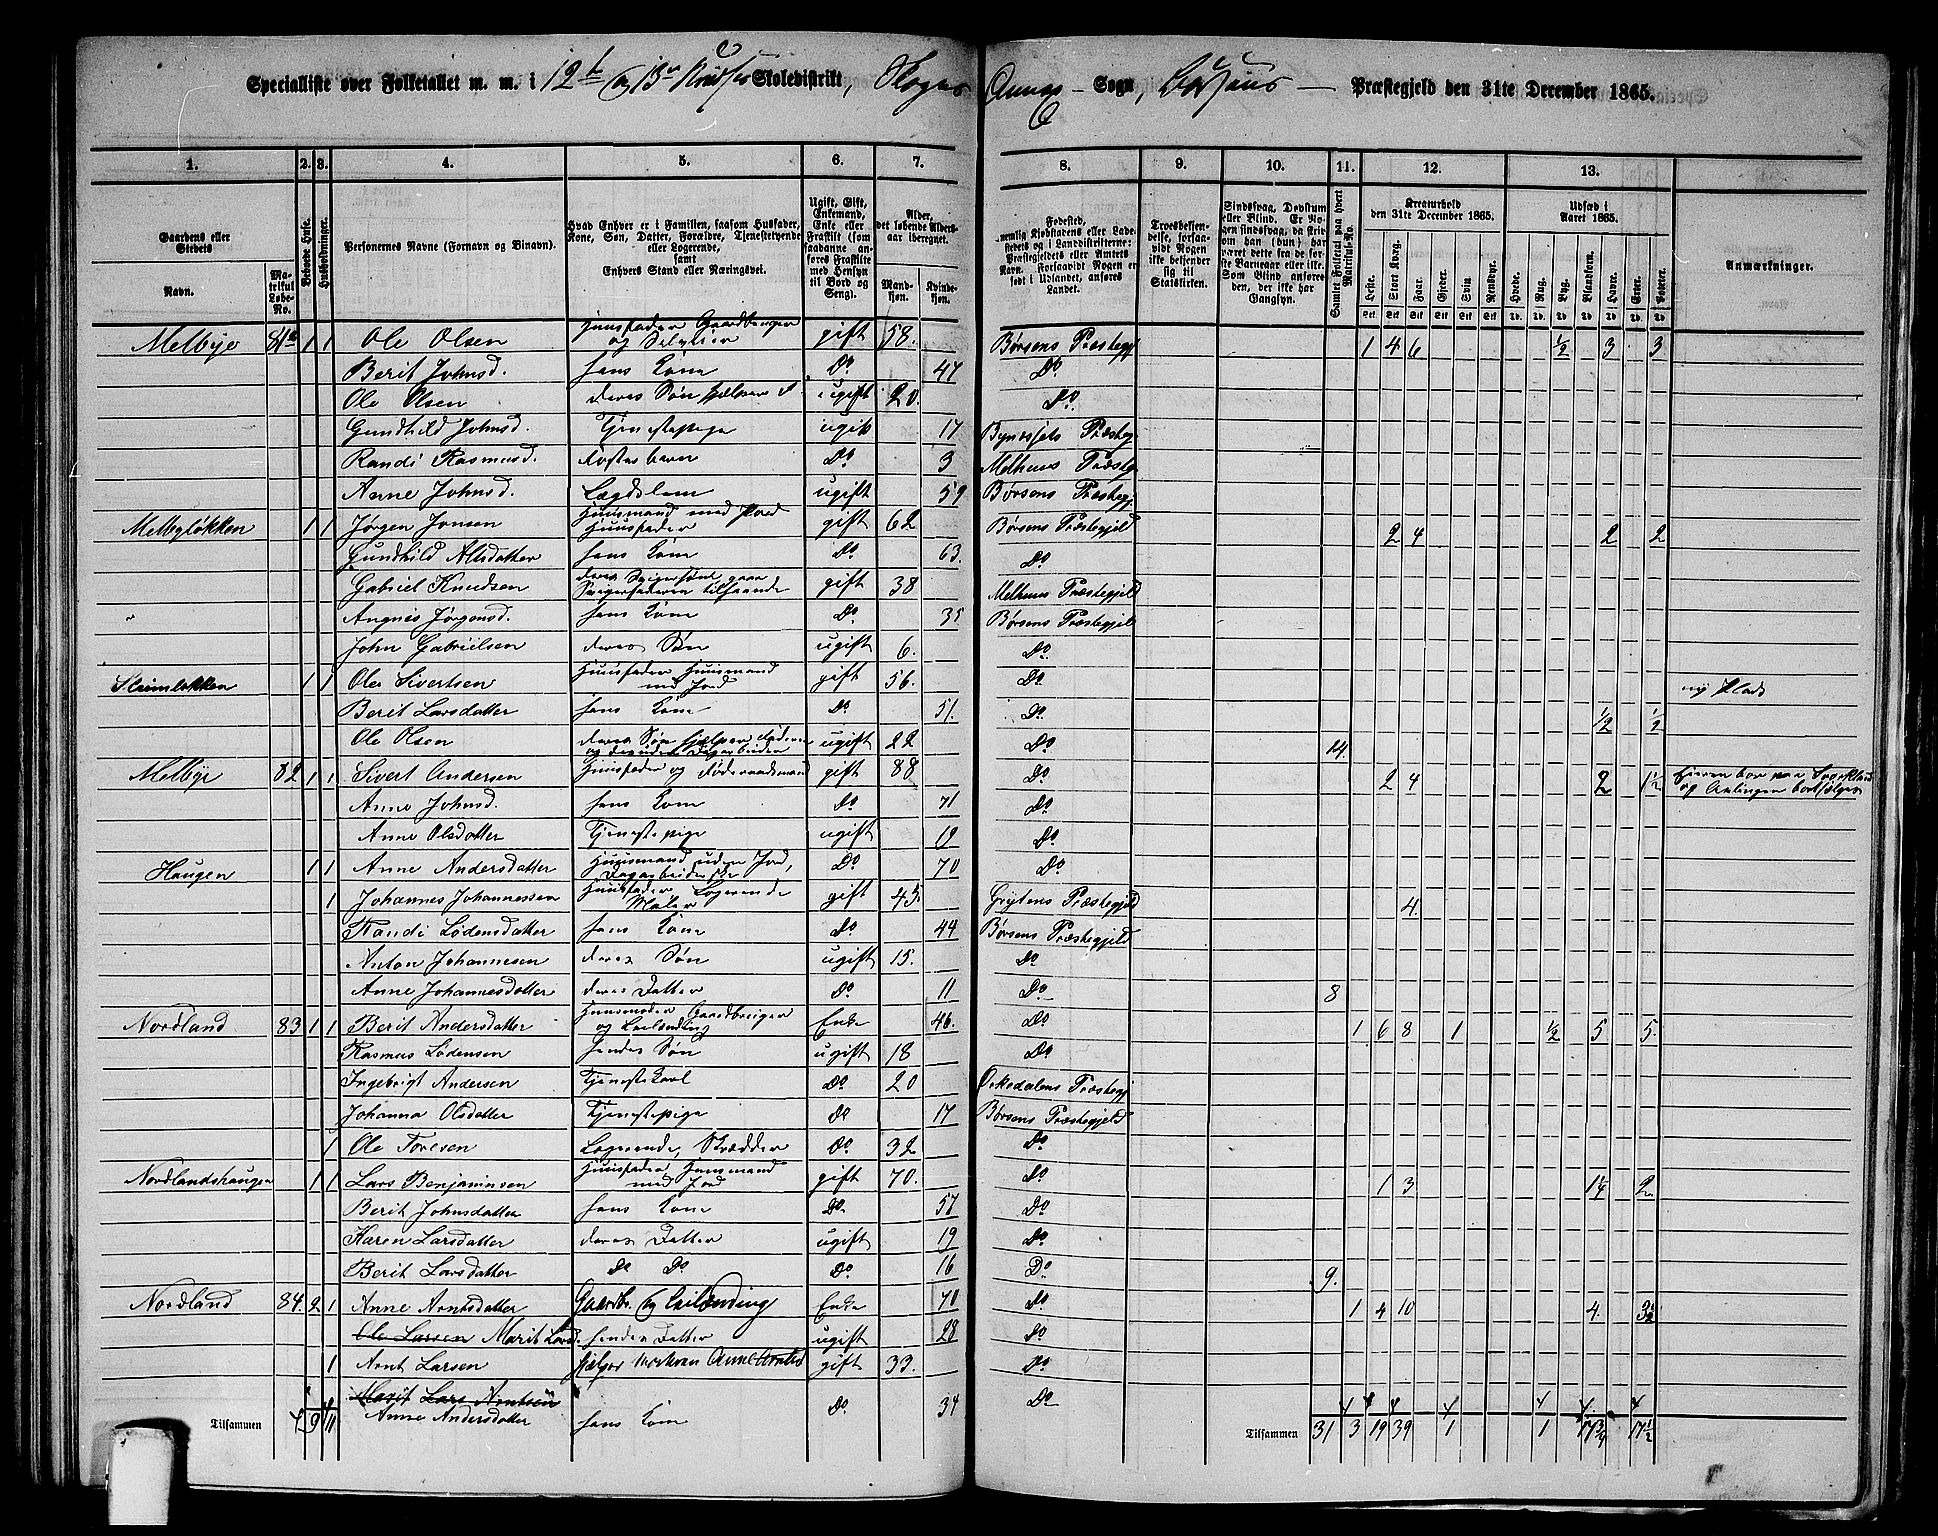 Specialliste over Folketallet m. m. i 12te og 13de Skoledistrikt, Skogns Annex Sogn, Børsens Præstegjeld den 31te December 1865.
1. 2. 3. 4. 5. 6. 7. 8. 9. 10. 11. 12. 13.
Gaardens eller Stedets
Navn.
Matrikul Løbe-No.
Beboede Huse.
Husholdninger.
Personernes Navne (Fornavn og Binavn).
Hvad Enhver er i Familien, saasom Husfader, Kone, Søn, Datter, Forældre, Tjenestetyende eller Logerende, samt Enhvers Stand eller Næringsvei.
Ugift, Gift, Enkemand, Enke eller Fraskilt (som saadanne anføres Fraskilte med Hensyn til Bord og Seng).
Alder, det løbende Aldersaar iberegnet.
Mandkjøn. Kvindekjøn.
Fødested, nemlig Kjøbstadens eller Ladestedets og i Landdistrikterne: Præstegjeldets eller Amtets Navn. Forsaavidt Nogen er født i Udlandet, anføres Landet.
Troesbekjendelse, forsaavidt Nogen ikke bekjender sig til Statskirken.
Sindssvag, Døvstum eller Blind.
Samlet Folketal paa hvert Matrikul-No.
Kreaturhold den 31te December 1865.
Heste. Stort Kvæg. Faar. Gjeder. Svin. Rensdyr.
Udsæd i Aaret 1865.
Hvede. Rug. Byg. Blandkorn. Havre. Erter. Poteter.
Anmærkninger.
Melbye 81a 1 1 Ole Olsen Huusfader Gaardbruger og Selveier gift 58. Børsens Præstegj 1 4 6 ½ 3 3
Berit Johnsd. hans Kone Do 47 Do
Ole Olsen deres Søn hjelper ugift 20. Do.
Gundhild Johnsd. Tjenestepige ugift 17 Bynessets Præsteg.
Randi Rasmusd. Fosterbarn Do 3 Melhuus Præsteg
Anne Johnsd. Lægdslem ugift 59 Børsens Præstegj
Melbyløkken 1 1 Jørgen Jonsen Huusmand med Jord Huusfader gift 62 Børsens Præstegjeld 2 4 2 2
Gundhild Alsdatter hans Kone Do 63. Do
Gabriel Knudsen deres Svigersøn gaar Svigerfaderen tilhaande gift 38 Melhuus Præstegjeld
Angnes Jørgensd. hans Kone Do 35 Børsens Præstegjeld
John Gabrielsen deres Søn ugift 6. Do.
1 1 Ole Sivertsen Huusfader Huusmand med Jord gift 56. Do ny Plads
Berit Larsdatter hans Kone Do 51. Do. ½ ½
Ole Olsen deres Søn hjelper Faderen ugift 22 Do 14.
Melbye 82 1 1 Sivert Andersen Huusfader og Føderaadsmand gift 88 Do 2 4 2 1½
Anne Johnsd. hans Kone Do 71 Do
Anne Olsdatter Tjenestepige ugift 19 Do
Haugen 1 1 Anne Andersdatter Huusmand uden Jord, Dagarbeiderske Do 70 Do
1 Johannes Johannessen Huusfader Logerende Maler gift 45. Grytens Præstegjeld 4.
Randi Lodensdatter hans Kone Do 44 Børsens Præstegjeld
Anton Johannesen deres Søn ugift 15. Do
Anne Johannesdatter deres Datter Do 11 Do 8
Nordland 83 1 1 Berit Andersdatter Huusmoder Gaardbruger og Leilænding Enke 46. Do 1 6 8 1 ½ 5 5.
Rasmus Lodensen hendes Søn ugift 18 Do
Ingebrigt Andersen Tjenestekarl Do 20 Orkedalens Præstegj
Johanna Olsdatter Tjenestepige Do 17 Børsens Præstegjeld
1 Ole Toresen Logerende, Skrædder Do 32 Do
Nordlandshaugen 1 1 Lars Benjaminsen Huusfader Huusmand med Jord gift 70. Do 1 3 1¼ 2
Berit Johnsdatter hans Kone Do 57 Do
Karen Larsdatter deres Datter ugift 19 Do
Berit Larsdatter Do Do Do 16 Do 9.
Nordland 84. 2 1 Anne Arntsdatter Gaardbr. og Leilænding Enke 70 Do 1 4 10 4. 3½
Ole Larsen Marit Larsd. hendes Datter ugift 28 Do
1 Arnt Larsen hjelper Moderen Anne Arntsd gift 33. Do
Marit Lars Arntsen
Anne Andersdatter hans Kone Do. 34 Do
Tilsammen 4 9 11 Tilsammen 31 3 19 39 1 1 17¾ 17½